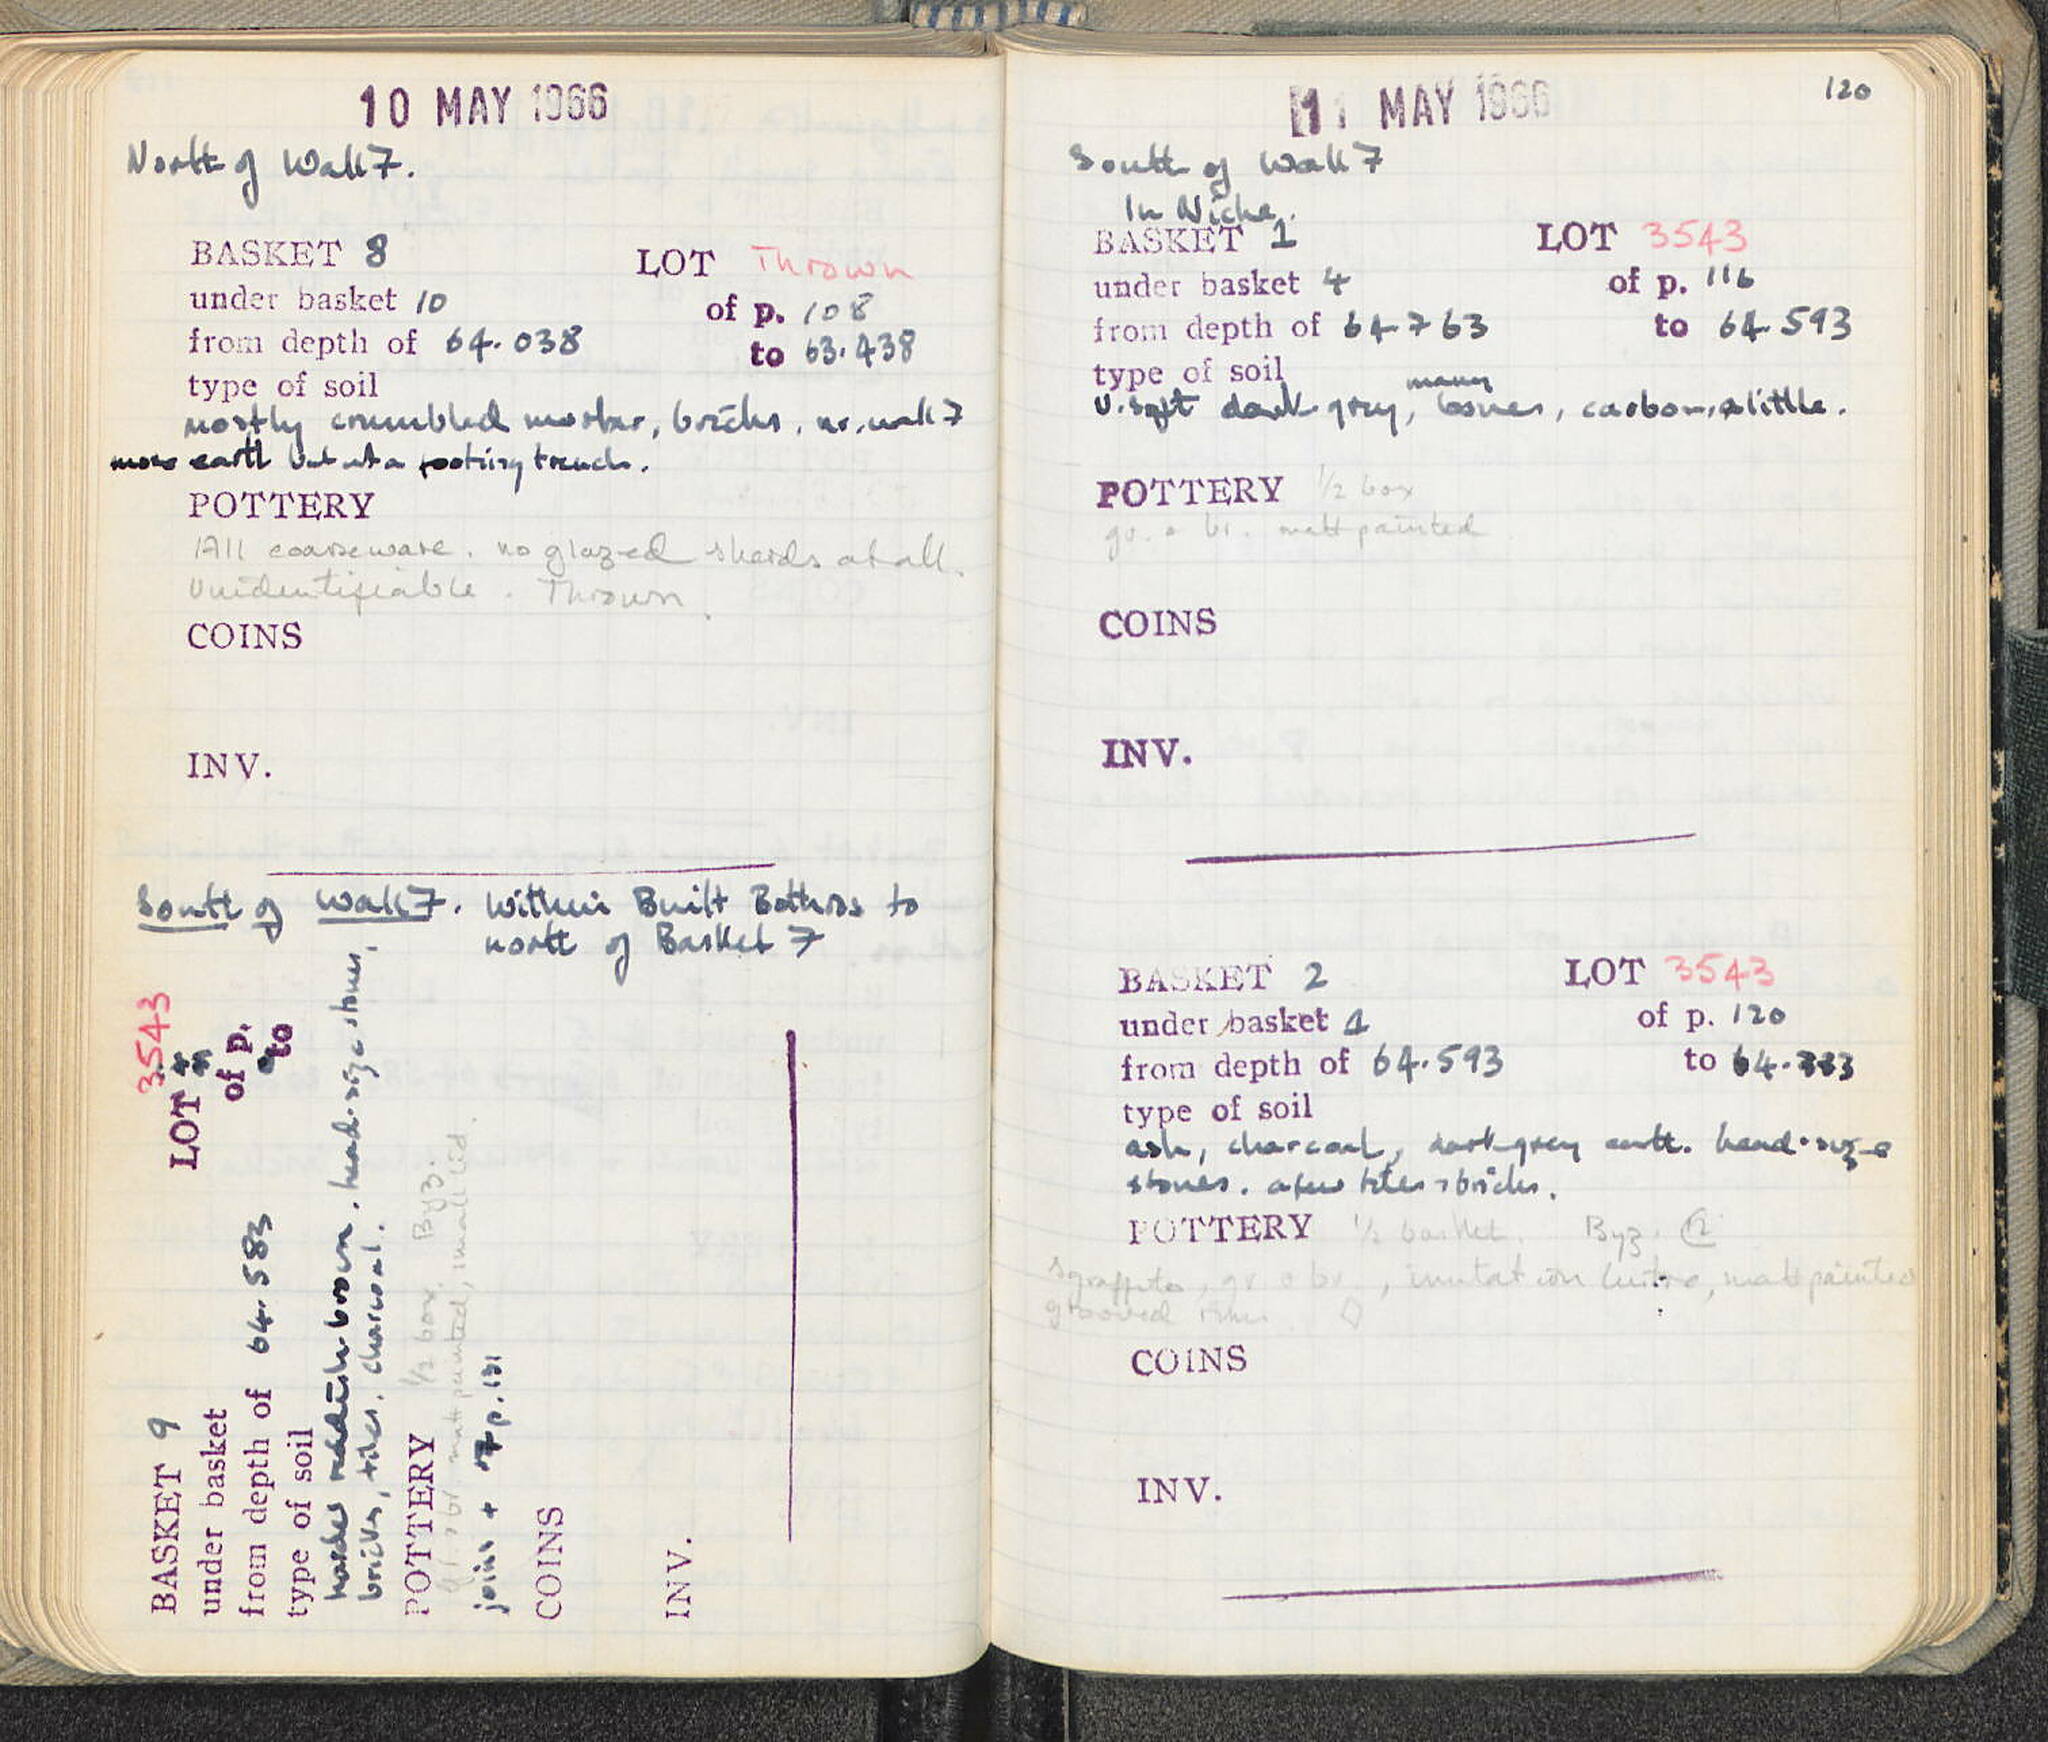 10 MAY 1966
North of Wall 7.
BASKET 8 LOT Thrown
under basket 10 of p. 108
from depth of 64.038 to 63.438
type of soil
mostly crumbled mortar, bricks, nr. wall 7
more earth but not a footing trench.
POTTERY
All coarseware. no glazed sherds at all.
Unidentifiable. Thrown.
COINS
INV.
South of Wall 7. Within Built Bothros to
north of Basket 7
BASKET 9 LOT 3543
under basket of p.
from depth of 64.583 to
type of soil
harder reddish brown. head-size stones,
bricks, tiles, charcoal.
POTTERY 1/2 box. Byz.
gr. & br. matt painted, small lid.
joins + p. 121
COINS
INV.
120
11 MAY 1966
South of Wall 7
In Niche.
BASKET 1 LOT 3543
under basket 4 of p. 116
from depth of 64.763 to 64.593
type of soil
many
v. soft dark grey, bones, carbon, little.
POTTERY 1/2 box
gr. & br. matt painted
COINS
INV.
BASKET 2 LOT 3543
under basket 1 of p. 120
from depth of 64.593 to 64.333
type of soil
ash, charcoal, dark grey earth. head-size
stones. a few tiles & bricks.
POTTERY 1/2 basket. Byz. 12
Sgraffito, gr. & br., imitation lustre, matt painted
grooved rims
COINS
INV.